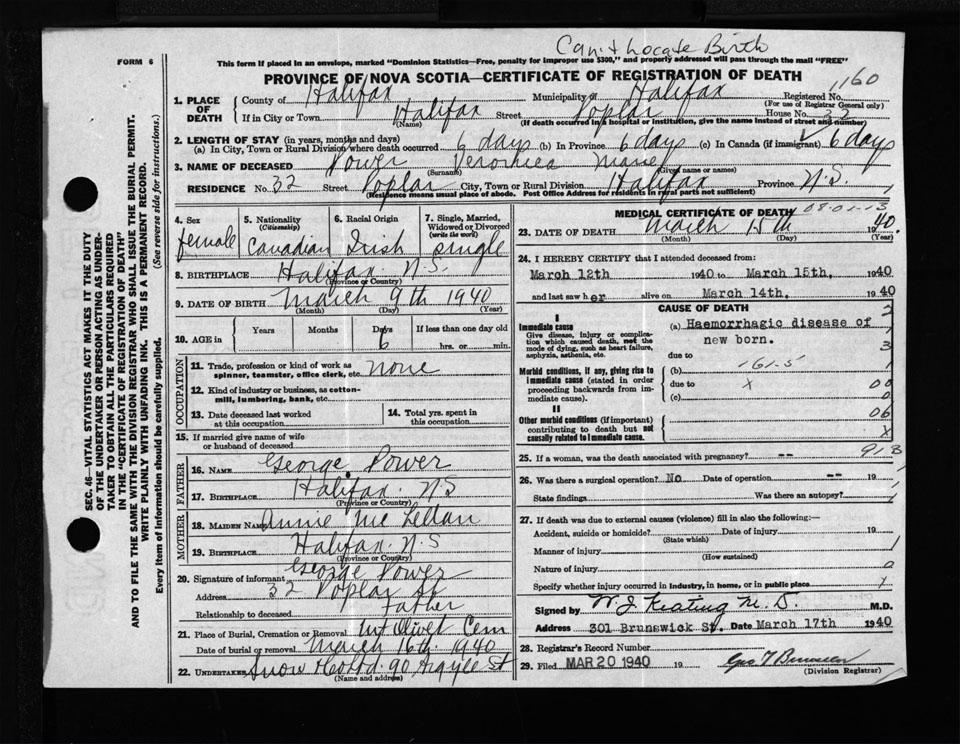 Can't Locate Birth
FORM 6
This form if placed in an envelope, marked "Dominion Statistics—Free, penalty for improper use $300," and properly addressed will pass through the mail "FREE"
PROVINCE OF NOVA SCOTIA—CERTIFICATE OF REGISTRATION OF DEATH
160
1. PLACE OF DEATH
County of Halifax Municipality of Halifax Registered No.
(For use of Registrar General only)
If in City or Town Halifax Street Poplar House No. 32
(Name) (If death occurred in a hospital or institution, give the name instead of street and number)
2. LENGTH OF STAY (in years, months and days)
(a) In City, Town or Rural Division where death occurred 6 days (b) In Province 6 days (c) In Canada (if immigrant) 6 days
3. NAME OF DECEASED Power Veronica Marie
(Surname) (Given name or names)
RESIDENCE No. 32 Street Poplar City, Town or Rural Division Halifax Province N.S.
(Residence means usual place of abode. Post Office Address for residents in rural parts not sufficient)
4. Sex female
5. Nationality (Citizenship) Canadian
6. Racial Origin Irish
7. Single, Married, Widowed or Divorced (write the word) single
8. BIRTHPLACE Halifax N.S.
(Province or Country)
9. DATE OF BIRTH March 9th 1940
(Month) (Day) (Year)
10. AGE in Years Months Days 6 If less than one day old hrs. or min.
OCCUPATION
11. Trade, profession or kind of work as spinner, teamster, office clerk, etc. none
12. Kind of industry or business, as cotton-mill, lumbering, bank, etc.
13. Date deceased last worked at this occupation
14. Total yrs. spent in this occupation
15. If married give name of wife or husband of deceased
FATHER
16. NAME George Power
17. BIRTHPLACE Halifax. N.S
(Province or Country)
MOTHER
18. MAIDEN NAME Annie McLellan
19. BIRTHPLACE Halifax. N.S
(Province or Country)
20. Signature of informant George Power
Address 32 Poplar St
Relationship to deceased Father
21. Place of Burial, Cremation or Removal Mt Olivet Cem
Date of burial or removal March 16th 1940
22. UNDERTAKER Snow Co Ltd. 90 Argyle St
(Name and address)
MEDICAL CERTIFICATE OF DEATH 08-01-13
23. DATE OF DEATH March 15th 1940
(Month) (Day) (Year)
24. I HEREBY CERTIFY that I attended deceased from:
March 12th 1940 to March 15th, 1940
and last saw her alive on March 14th. 1940
CAUSE OF DEATH
I
Immediate cause
Give disease, injury or complication which caused death, not the mode of dying, such as heart failure, asphyxia, asthenia, etc.
(a) Haemorrhagic disease of new born.
due to
Morbid conditions, if any, giving rise to immediate cause (stated in order proceeding backwards from immediate cause).
(b) 161.5
due to x
(c)
II
Other morbid conditions (if important) contributing to death but not causally related to immediate cause.
2
1
3
1
00
0
06
X
25. If a woman, was the death associated with pregnancy? -- 913
26. Was there a surgical operation? No Date of operation -- 19
State findings Was there an autopsy?
27. If death was due to external causes (violence) fill in also the following:—
Accident, suicide or homicide? Date of injury 19
(State which)
Manner of injury
(How sustained)
Nature of injury
Specify whether injury occurred in industry, in home, or in public place
Signed by W. J. Keating M.D. M.D.
Address 301 Brunswick St. Date March 17th 1940
28. Registrar's Record Number
29. Filed MAR 20 1940 19
(Division Registrar)
SEC. 46—VITAL STATISTICS ACT MAKES IT THE DUTY
OF THE UNDERTAKER OR PERSON ACTING AS UNDER-
TAKER TO OBTAIN ALL THE PARTICULARS REQUIRED
IN THE "CERTIFICATE OF REGISTRATION OF DEATH"
AND TO FILE THE SAME WITH THE DIVISION REGISTRAR WHO SHALL ISSUE THE BURIAL PERMIT.
WRITE PLAINLY WITH UNFADING INK. THIS IS A PERMANENT RECORD.
Every item of information should be carefully supplied. (See reverse side for instructions.)